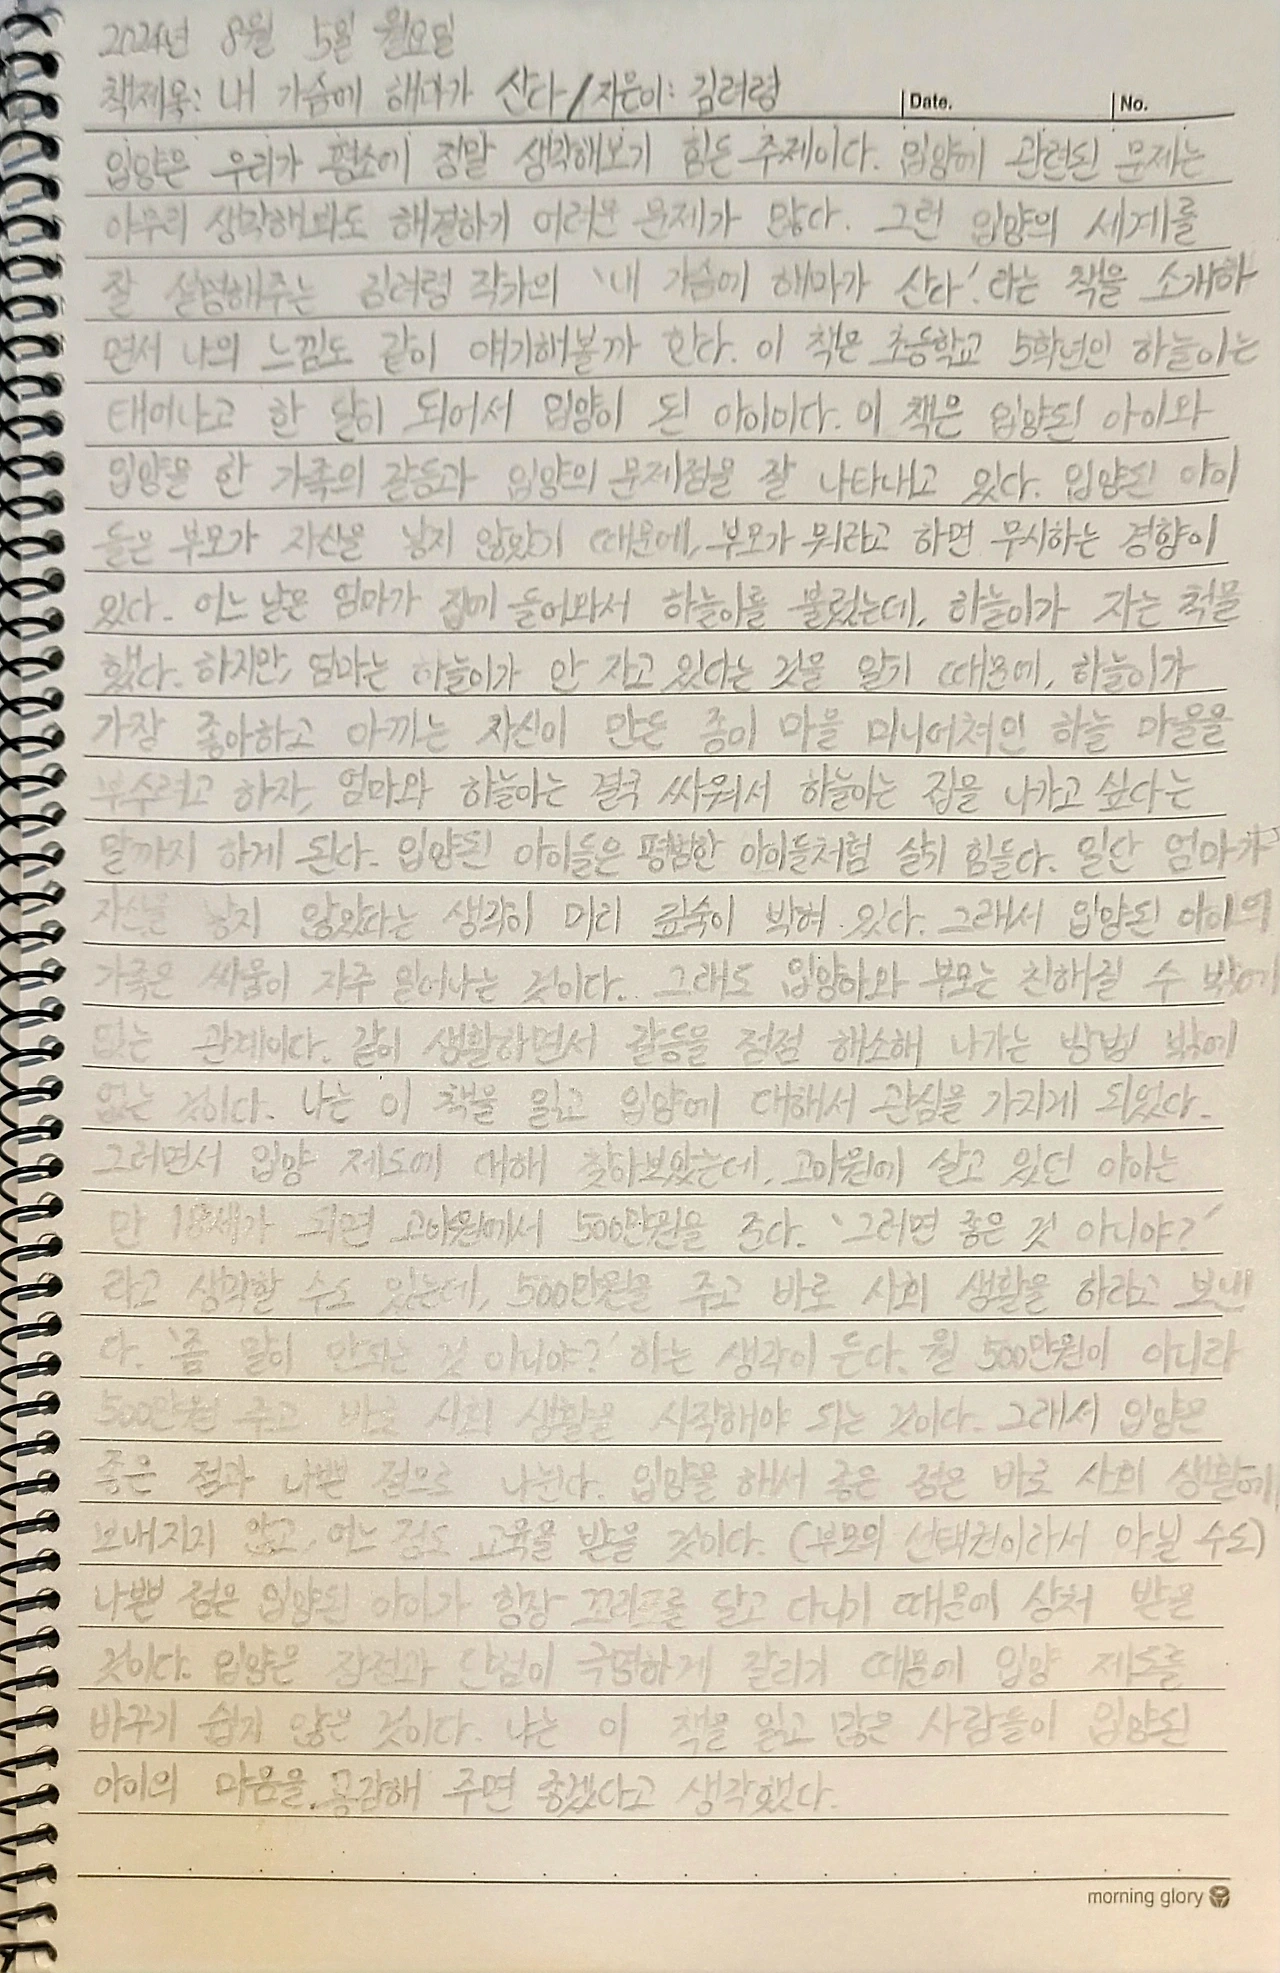 2024년 8월 5일 월요일
책제목: 내 가슴에 해마가 산다/지은이: 김려령
Date.
No.
입양은 우리가 평소에 정말 생각해보기 힘든 주제이다. 입양에 관련된 문제는
아무리 생각해봐도 해결하기 어려운 문제가 많다. 그런 입양의 세계를
잘 설명해주는 김려령 작가의 '내 가슴에 해마가 산다'.라는 책을 소개하
면서 나의 느낌도 같이 얘기해볼까 한다. 이 책은 초등학교 5학년인 하늘이는
태어나고 한 달이 되어서 입양이 된 아이이다. 이 책은 입양된 아이와
입양을 한 가족의 갈등과 입양의 문제점을 잘 나타내고 있다. 입양된 아이
들은 부모가 자신을 낳지 않았기 때문에, 부모가 뭐라고 하면 무시하는 경향이
있다. 어느 날은 엄마가 집에 들어와서 하늘이를 불렀는데, 하늘이가 자는 척을
했다. 하지만, 엄마는 하늘이가 안 자고 있다는 것을 알기 때문에, 하늘이가
가장 좋아하고 아끼는 자신이 만든 종이 마을 미니어쳐인 하늘 마을을
부수려고 하자, 엄마와 하늘이는 결국 싸워서 하늘이는 집을 나가고 싶다는
말까지 하게 된다. 입양된 아이들은 평범한 아이들처럼 살기 힘들다. 일단 엄마가
자신을 낳지 않았다는 생각이 머리 깊숙이 박혀 있다. 그래서 입양된 아이의
가족은 싸움이 자주 일어나는 것이다. 그래도 입양아와 부모는 친해질 수 밖에
없는 관계이다. 같이 생활하면서 갈등을 점점 해소해 나가는 방법 밖에
없는 것이다. 나는 이 책을 읽고 입양에 대해서 관심을 가지게 되었다.
그러면서 입양 제도에 대해 찾아보았는데, 고아원에 살고 있던 아이는
만 18세가 되면 고아원에서 500만원을 준다. '그러면 좋은 것 아니야?'
라고 생각할 수도 있는데, 500만원을 주고 바로 사회 생활을 하라고 보낸
다. '좀 말이 안되는 것 아니야?' 하는 생각이 든다. 월 500만원이 아니라
500만원 주고 바로 사회 생활을 시작해야 되는 것이다. 그래서 입양은
좋은 점과 나쁜 점으로 나뉜다. 입양을 해서 좋은 점은 바로 사회 생활에
보내지지 않고, 어느 정도 교육을 받을 것이다. (부모의 선택권이라서 아닐 수도)
나쁜 점은 입양된 아이가 항상 꼬리표를 달고 다니기 때문에 상처 받을
것이다. 입양은 장점과 단점이 극명하게 갈리기 때문에 입양 제도를
바꾸기 쉽지 않은 것이다. 나는 이 책을 읽고 많은 사람들이 입양된
아이의 마음을 공감해 주면 좋겠다고 생각했다.
morning glory